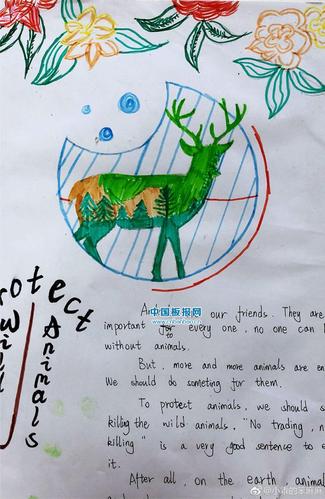 Protect
Wild
Animals
中国板报网
our friends. They are
important for every one, no one can
to
without animals.
But, more and more animals are en
We should do someting for them.
To protect animals, we should s
killing the wild animals. "No trading, n
killing" is a very good sentence to e
it.
After all, on the earth, animal